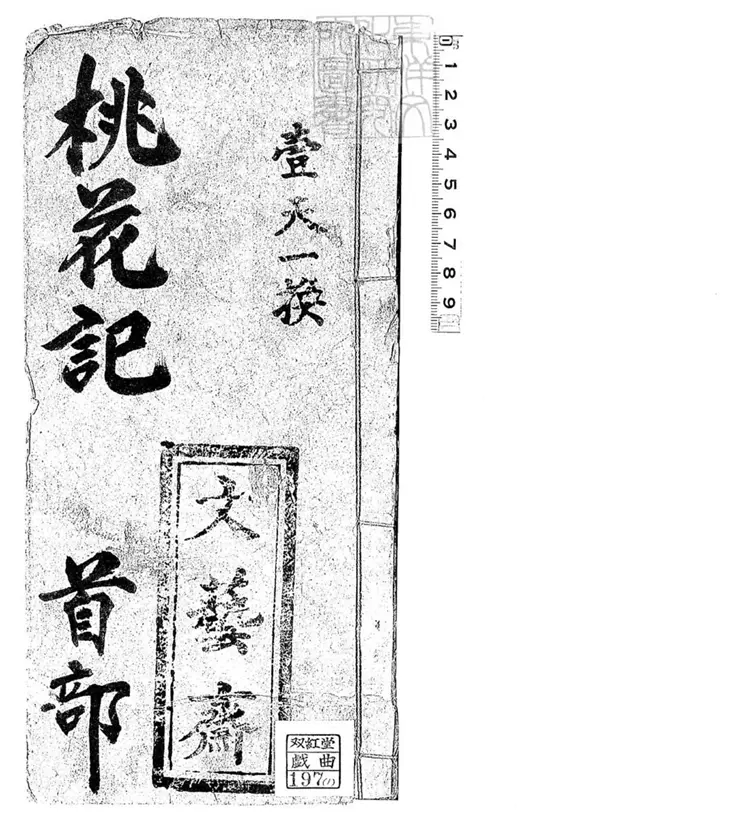 桃花記 首部
壹天一換
文藝齋
双紅堂
戯曲
197(1)
0 1 2 3 4 5 6 7 8 9